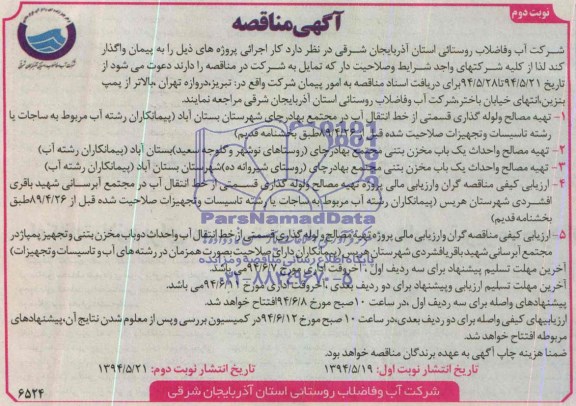 نوبت دوم
آگهی مناقصه
شرکت آب وفاضلاب روستائی استان آذربایجان شرقی در نظر دارد کار اجرائی پروژه های ذیل را به پیمان واگذار
کند لذا از کلیه شرکتهای واجد شرایط وصلاحیت دار که تمایل به شرکت در مناقصه را دارند دعوت می شود از
تاریخ ۹۴/۵/۲۱تا۹۴/۵/۲۸برای دریافت اسناد مناقصه به امور پیمان شرکت واقع در: تبریز،دروازه تهران ،بالاتر از پمپ
بنزین،انتهای خیابان باختر،شرکت آب وفاضلاب روستائی استان آذربایجان شرقی مراجعه نمایند.
۱- تهیه مصالح ولوله گذاری قسمتی از خط انتقال آب در مجتمع بهادرچای شهرستان بستان آباد (پیمانکاران رشته آب مربوط به ساجات یا
رشته تاسیسات وتجهیزات صلاحیت شده قبل از ۸۹/۴/۲۶طبق بخشنامه قدیم)
۲- تهیه مصالح واحداث یک باب مخزن بتنی مجتمع بهادرچای (روستاهای نوشهر و کلوجه سعید)بستان آباد (پیمانکاران رشته آب)
۳- تهیه مصالح واحداث یک باب مخزن بتنی مجتمع بهادرچای (روستای شیروانه ده)شهرستان بستان آباد (پیمانکاران رشته آب)
۴- ارزیابی کیفی مناقصه گران وارزیابی مالی پروژه تهیه مصالح ولوله گذاری قسمتی از خط انتقال آب در مجتمع آبرسانی شهید باقری
افشردی شهرستان هریس (پیمانکاران رشته آب مربوط به ساجات یا رشته تاسیسات وتجهیزات صلاحیت شده قبل از ۸۹/۴/۲۶طبق
بخشنامه قدیم)
۵- ارزیابی کیفی مناقصه گران وارزیابی مالی پروژه تهیه مصالح ولوله گذاری قسمتی از خط انتقال آب واحداث دوباب مخزن بتنی وتجهیز پمپاژ در
مجتمع آبرسانی شهید باقر یافشردی شهرستان هریس (پیمانکاران دارای صلاحیت بصورت همزمان در رشته های آب و تاسیسات وتجهیزات)
آخرین مهلت تسلیم پیشنهاد برای سه ردیف اول ، آخروقت اداری مورخ ۹۴/۶/۷می باشد.
آخرین مهلت تسلیم ارزیابی وپیشنهاد برای دو ردیف بعدی ، آخروقت اداری مورخ ۹۴/۶/۱۱می باشد.
پیشنهادهای واصله برای سه ردیف اول ،در ساعت ۱۰ صبح مورخ ۹۴/۶/۸افتتاح خواهد شد.
ارزیابیهای کیفی واصله برای دو ردیف بعدی،در ساعت ۱۰ صبح مورخ ۹۴/۶/۱۲در کمیسیون بررسی وپس از معلوم شدن نتایج آن،پیشنهادهای
مربوطه افتتاح خواهد شد.
ضمنا هزینه چاپ آگهی به عهده برندگان مناقصه خواهد بود.
تاریخ انتشار نوبت اول: ۱۳۹۴/۵/۱۹ تاریخ انتشار نوبت دوم: ۱۳۹۴/۵/۲۱
شرکت آب وفاضلاب روستائی استان آذربایجان شرقی
۶۵۲۴
ParsNamadData
پایگاه اطلاع رسانی مناقصه و مزایده
۰۲۱-۸۸۳۴۹۶۷۰-۵